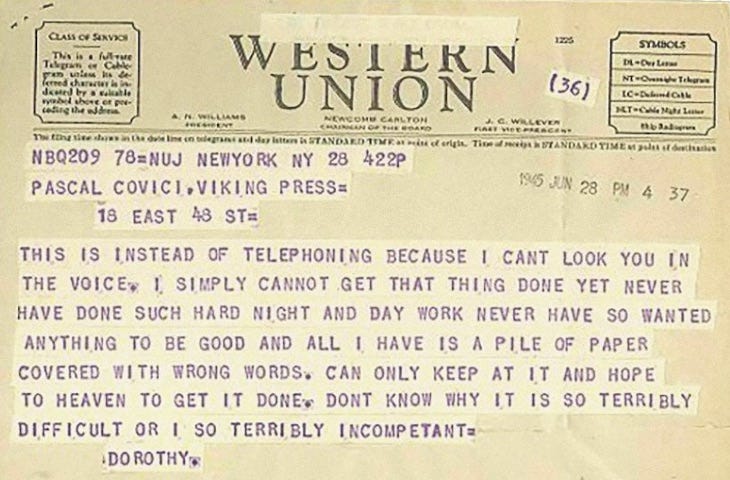 CLASS OF SERVICE
This is a full-rate
Telegram or Cable-
gram unless its de-
ferred character is in-
dicated by a suitable
symbol above or pre-
ceding the address.
WESTERN
UNION
1225
(36)
A. N. WILLIAMS
PRESIDENT
NEWCOMB CARLTON
CHAIRMAN OF THE BOARD
J. C. WILLEVER
FIRST VICE-PRESIDENT
SYMBOLS
DL=Day Letter
NT=Overnight Telegram
LC=Deferred Cable
NLT=Cable Night Letter
Ship Radiogram
The filing time shown in the date line on telegrams and day letters is STANDARD TIME at point of origin. Time of receipt is STANDARD TIME at point of destination
NBQ209 78=NUJ NEWYORK NY 28 422P
PASCAL COVICI, VIKING PRESS=
1945 JUN 28 PM 4 37
18 EAST 48 ST=
THIS IS INSTEAD OF TELEPHONING BECAUSE I CANT LOOK YOU IN
THE VOICE. I SIMPLY CANNOT GET THAT THING DONE YET NEVER
HAVE DONE SUCH HARD NIGHT AND DAY WORK NEVER HAVE SO WANTED
ANYTHING TO BE GOOD AND ALL I HAVE IS A PILE OF PAPER
COVERED WITH WRONG WORDS. CAN ONLY KEEP AT IT AND HOPE
TO HEAVEN TO GET IT DONE. DONT KNOW WHY IT IS SO TERRIBLY
DIFFICULT OR I SO TERRIBLY INCOMPETANT=
DOROTHY.